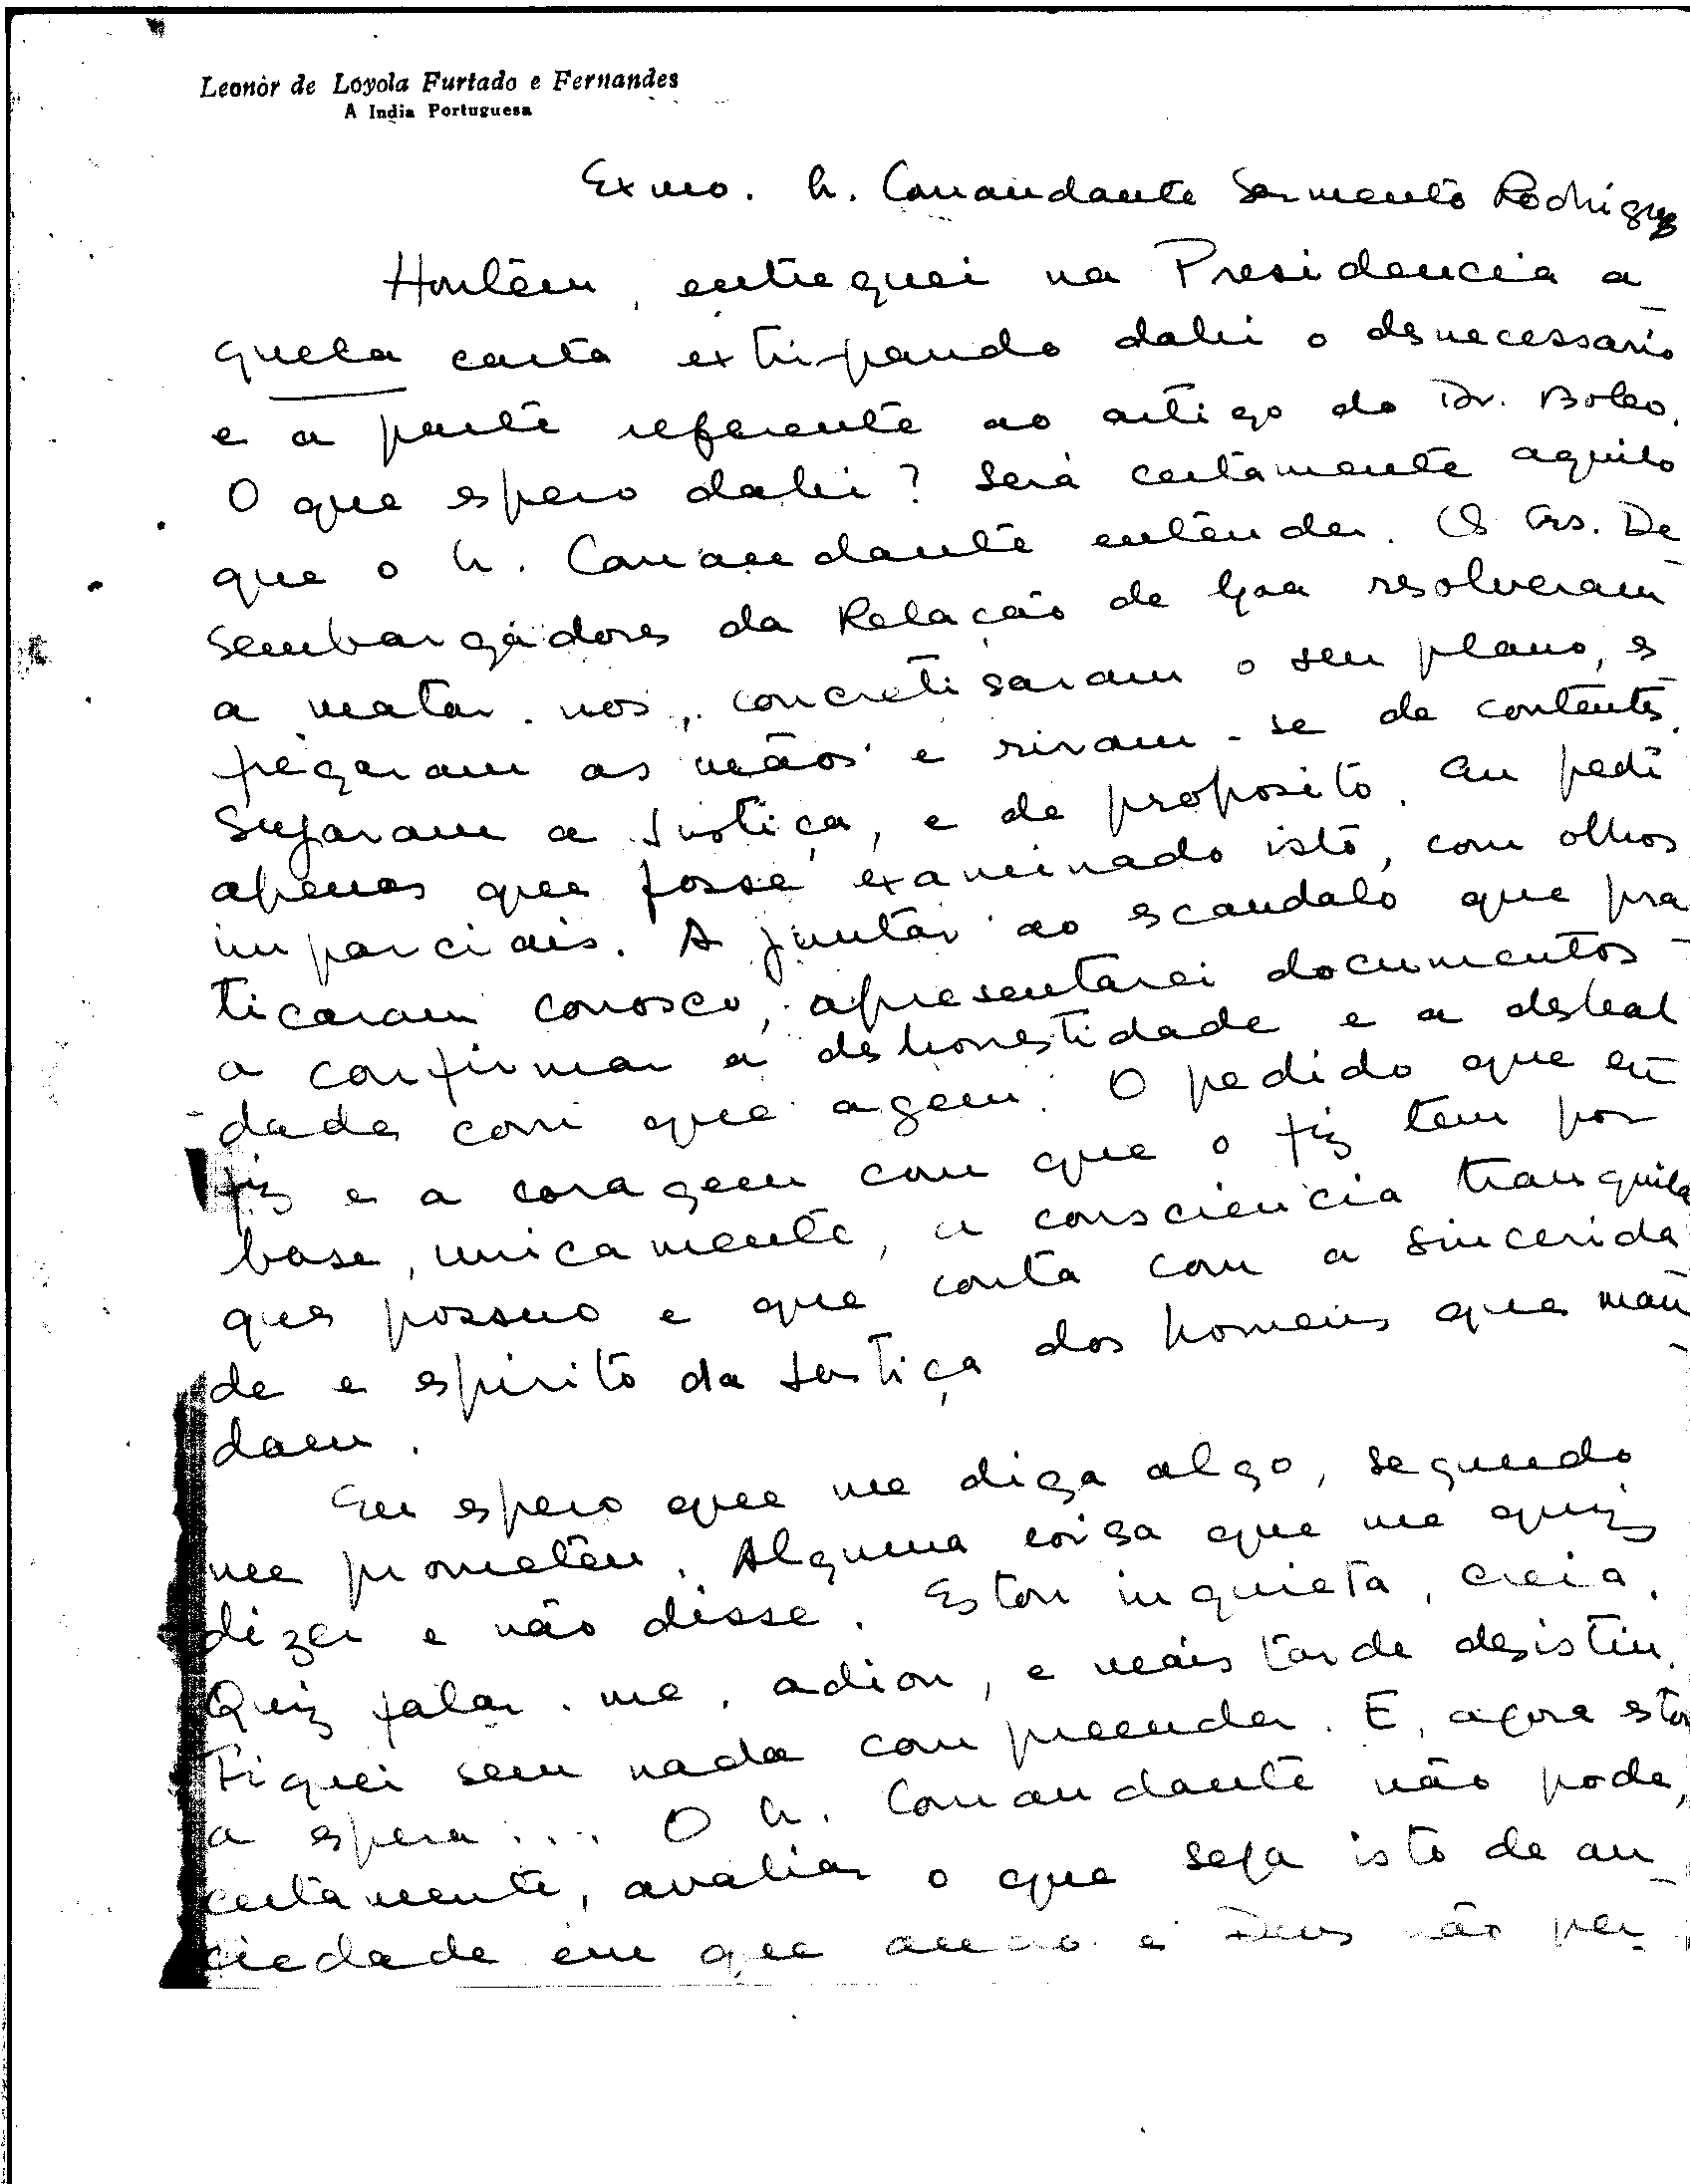 Leonòr de Loyola Furtado e Fernandes
A India Portuguesa
Exmo. Sr. Comandante Sarmento Rodrigues
Hontêm, entreguei na Presidencia a
quela carta extripando dahi o desnecessario
e a parte referente ao artigo do Dr. Boleo.
O que espero dahi? Será certamente aquilo
que o Sr. Comandante entender. Os Srs. De
sembargadores da Relação de Goa resolveram
a matar-nos, concretisaram o seu plano, es
fregaram as mãos e riram-se de contentes.
Sujaram a Justiça, e de proposito. Eu pedi
apenas que fosse examinado isto, com olhos
imparciais. A juntar ao escandalo que pra
ticaram conosco, apresentarei documentos
a confirmar a deshonestidade e a desleal
dade com que agem. O pedido que eu
fiz e a coragem com que o fiz tem por
base, unicamente, a consciencia tranquila
que possuo e que conta com a sincerida
de e espirito da Justiça dos homens que man
dam.
Eu espero que me diga algo, segundo
me prometeu. Alguma coisa que me quiz
dizer e não disse. Estou inquieta, creia.
Quiz falar-me, adiou, e mais tarde desistiu.
Fiquei sem nada compreender. E, agora estou
a espera.... O Sr. Comandante não pode,
certamente, avaliar o que seja isto de an
ciedade em que ando e Deus não per